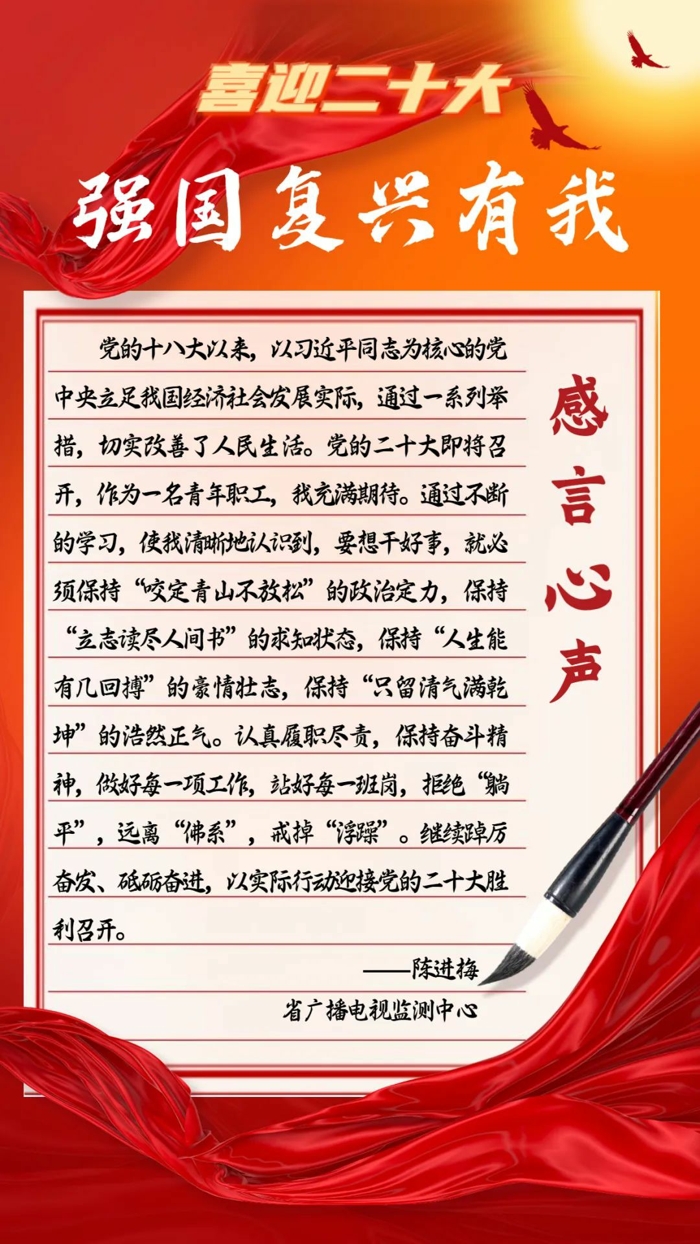 喜迎二十大
强国复兴有我
党的十八大以来，以习近平同志为核心的党
中央立足我国经济社会发展实际，通过一系列举
措，切实改善了人民生活。党的二十大即将召
开，作为一名青年职工，我充满期待。通过不断
的学习，使我清晰地认识到，要想干好事，就必
须保持“咬定青山不放松”的政治定力，保持
“立志读尽人间书”的求知状态，保持“人生能
有几回搏”的豪情壮志，保持“只留清气满乾
坤”的浩然正气。认真履职尽责，保持奋斗精
神，做好每一项工作，站好每一班岗，拒绝“躺
平”，远离“佛系”，戒掉“浮躁”。继续踔厉
奋发、砥砺奋进，以实际行动迎接党的二十大胜
利召开。
——陈进梅
省广播电视监测中心
感言心声